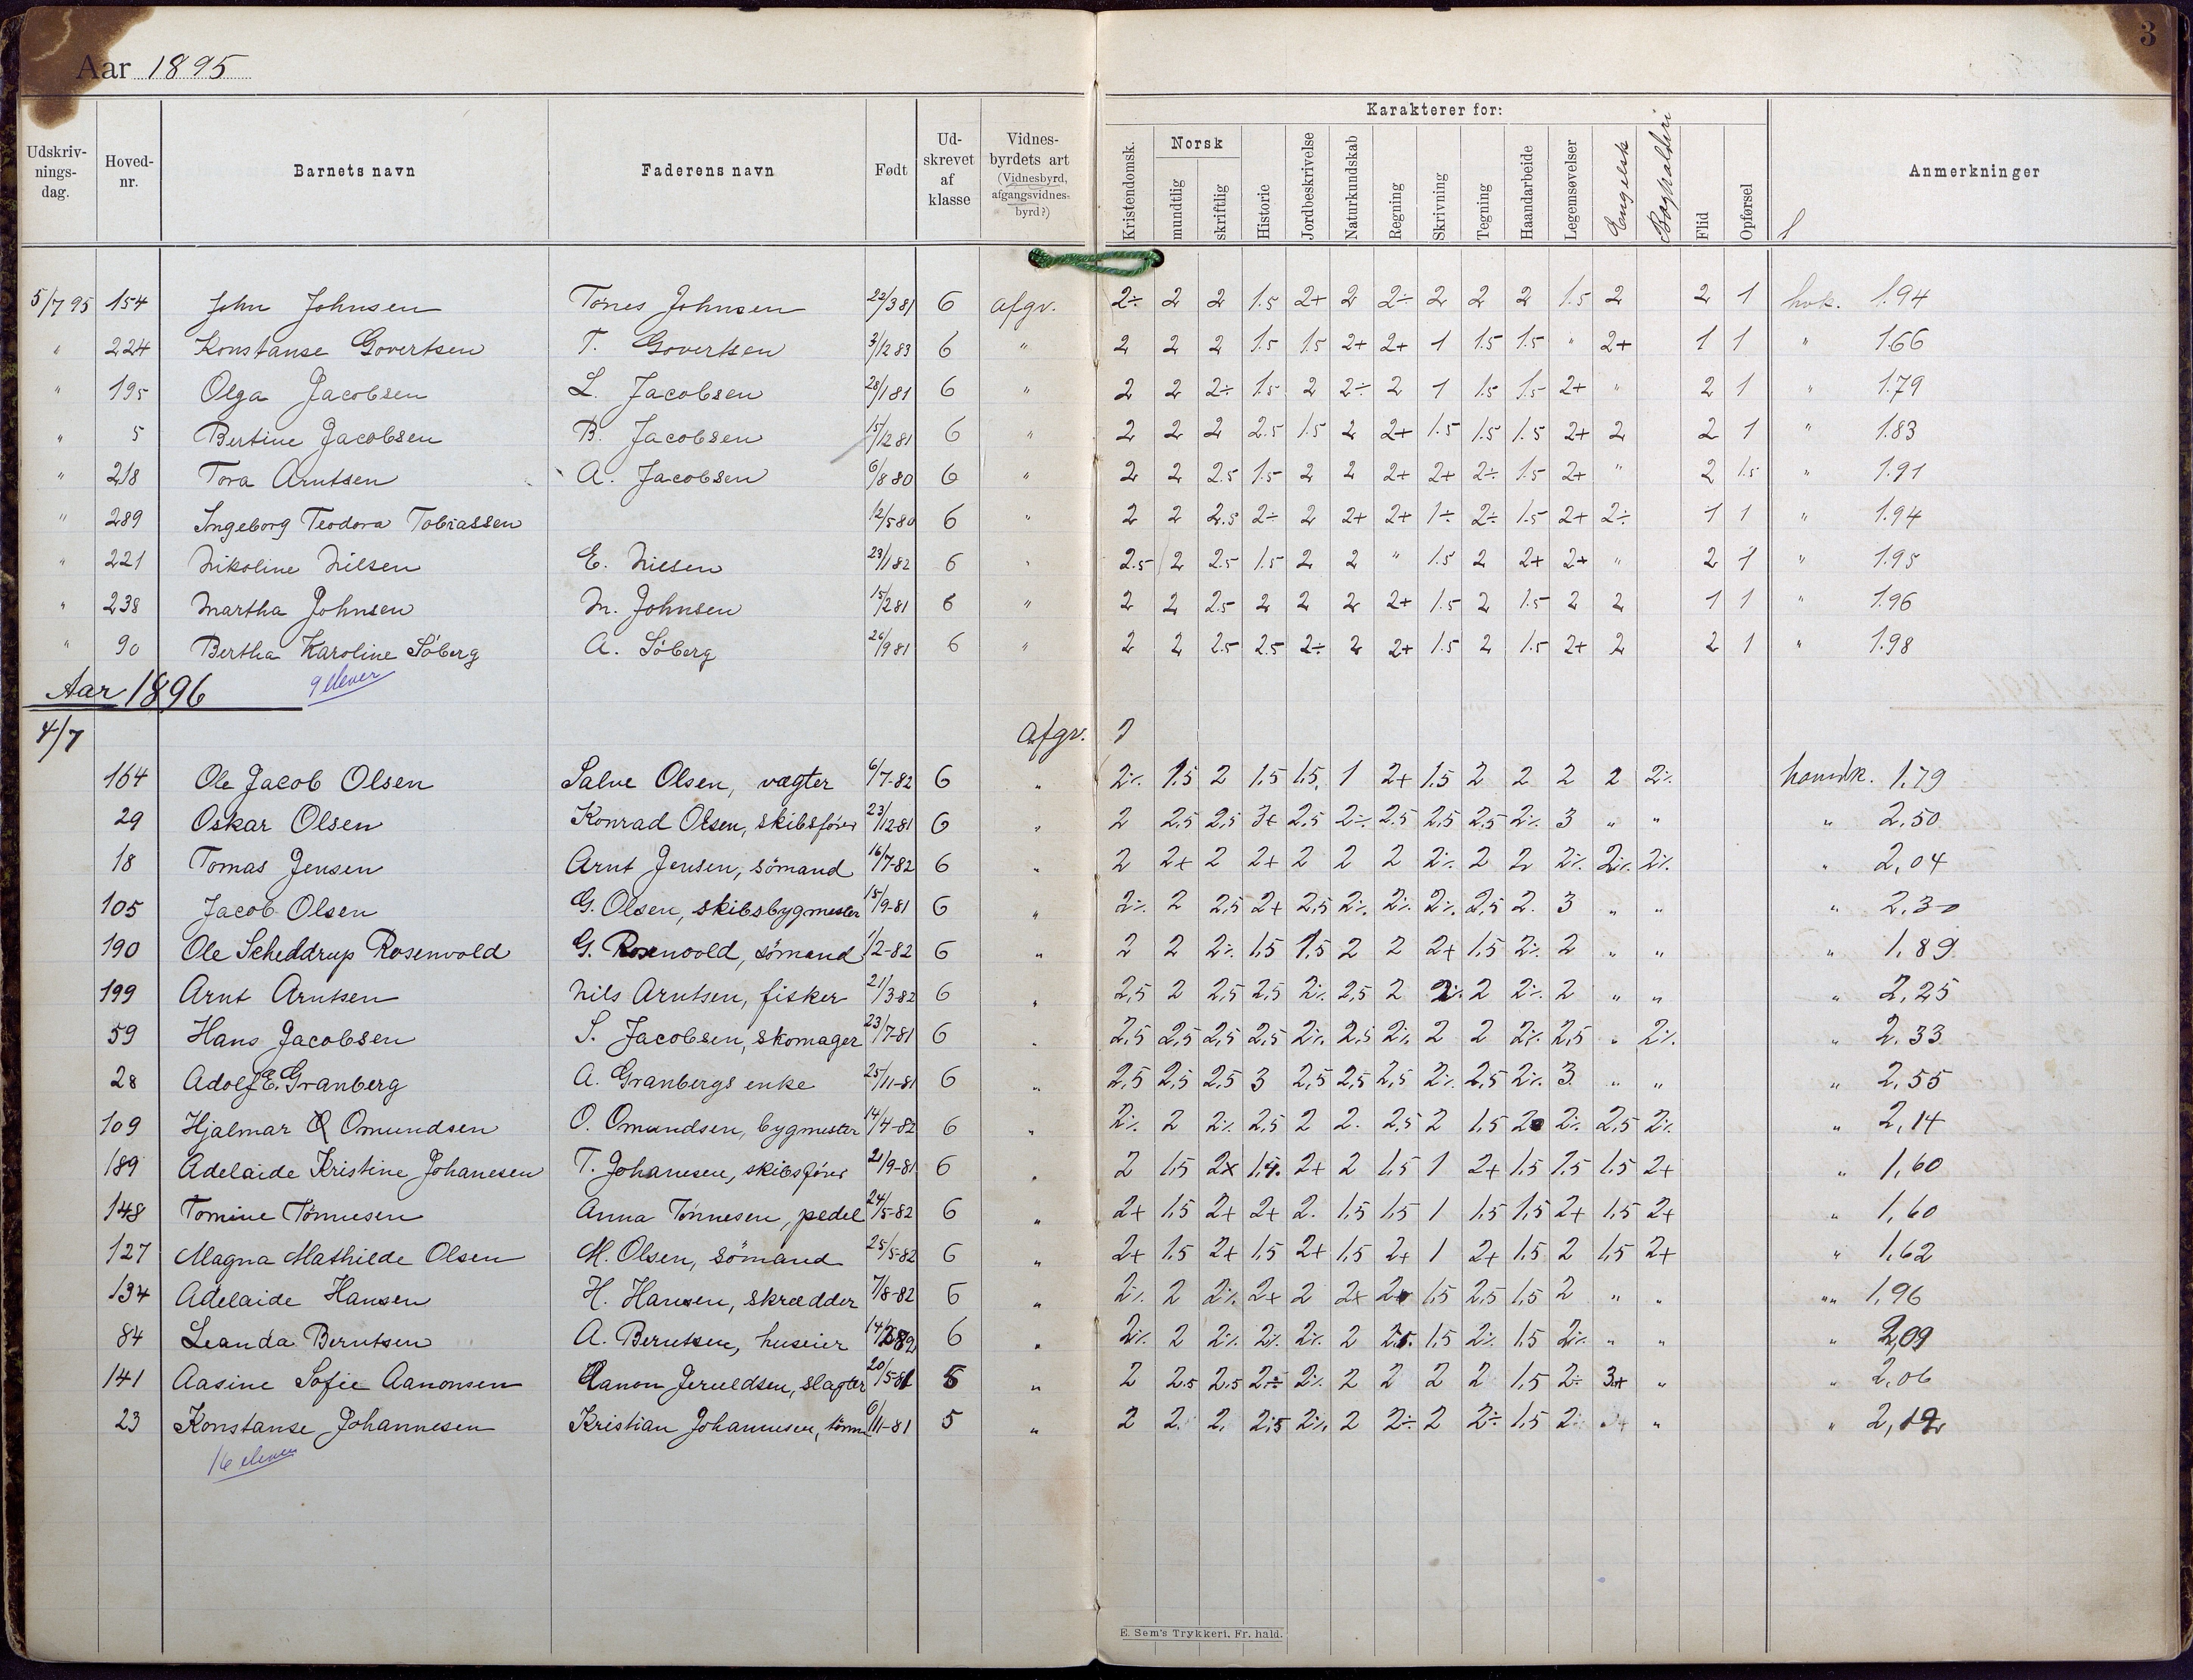 3
Aar 1895
Karakterer for:
Udskriv-nings-dag. Hoved-nr. Barnets navn Faderens navn Født Ud-skrevet af klasse Vidnes-byrdets art (Vidnesbyrd, afgangsvidnes-byrd?) Kristendomsk. Norsk mundtlig skriftlig Historie Jordbeskrivelse Naturkundskab Regning Skrivning Tegning Haandarbeide Legemsøvelser Engelsk Bogholderi Flid Opførsel Anmerkninger
5/7 95 154 John Johnsen Tønes Johnsen 22/3 81 6 afgv. 2÷ 2 2 1.5 2+ 2 2÷ 2 2 2 1.5 2 2 1 hvk. 1.94
" 224 Konstanse Govertsen T. Govertsen 3/12 83 6 " 2 2 2 1.5 1.5 2+ 2+ 1 1.5 1.5 " 2+ 1 1 " 1.66
" 195 Olga Jacobsen L. Jacobsen 28/1 81 6 " 2 2 2÷ 1.5 2 2÷ 2 1 1.5 1.5 2+ " 2 1 " 1.79
" 5 Bertine Jacobsen B. Jacobsen 15/12 81 6 " 2 2 2 2.5 1.5 2 2+ 1.5 1.5 1.5 2+ 2 2 1 " 1.83
" 218 Tora Arntsen A. Jacobsen 6/8 80 6 " 2 2 2.5 1.5 2 2 2+ 2+ 2÷ 1.5 2+ " 2 1.5 " 1.91
" 289 Ingeborg Teodora Tobiassen 12/5 80 6 " 2 2 2.5 2÷ 2 2+ 2+ 1÷ 2÷ 1.5 2+ 2÷ 1 1 " 1.94
" 221 Nikoline Nilsen E. Nilsen 23/1 82 6 " 2.5 2 2.5 1.5 2 2 " 1.5 2 2+ 2+ " 2 1 " 1.95
" 238 Martha Johnsen M. Johnsen 15/2 81 6 " 2 2 2.5 2 2 2 2+ 1.5 2 1.5 2 2 1 1 " 1.96
" 90 Bertha Karoline Söberg A. Söberg 26/9 81 6 " 2 2 2.5 2.5 2÷ 2 2+ 1.5 2 1.5 2+ 2 2 1 " 1.98
Aar 1896 9 elever
4/7 Afgv.
164 Ole Jacob Olsen Salve Olsen, vægter 6/7-82 6 " 2÷ 1,5 2 1,5 1,5 1 2+ 1,5 2 2 2 2 2÷ hovedk. 1,79
29 Oskar Olsen Konrad Olsen, skibsfører 23/12-81 6 " 2 2,5 2,5 3+ 2,5 2÷ 2,5 2,5 2,5 2÷ 3 " " " 2,50
18 Tomas Jensen Arnt Jensen, sömand 16/7-82 6 " 2 2+ 2 2+ 2 2 2 2÷ 2 2 2÷ 2÷ 2÷ " 2,04
105 Jacob Olsen G. Olsen, skibsbygmester 15/9-81 6 " 2÷ 2 2,5 2+ 2,5 2÷ 2÷ 2÷ 2,5 2 3 " " " 2,30
190 Ole Scheddrup Rosenvold G. Rosenvold, sömand 1/2-82 6 " 2 2 2÷ 1,5 1,5 2 2 2+ 1,5 2÷ 2 " " " 1,89
199 Arnt Arntsen Nils Arntsen, fisker 21/3-82 6 " 2,5 2 2,5 2,5 2÷ 2,5 2 2÷ 2 2÷ 2 " " " 2,25
59 Hans Jacobsen S. Jacobsen, skomager 23/7-81 6 " 2,5 2,5 2,5 2,5 2÷ 2,5 2÷ 2 2 2÷ 2,5 " 2÷ " 2,33
28 Adolf E. Granberg A. Granbergs enke 25/11-81 6 " 2,5 2,5 2,5 3 2,5 2,5 2,5 2÷ 2,5 2÷ 3 " " " 2,55
109 Hjalmar O Omundsen O. Omundsen, bygmester 14/4-82 6 " 2÷ 2 2÷ 2,5 2 2 2,5 2 1,5 2 2÷ 2,5 2÷ " 2,14
189 Adelaide Kristine Johanesen T. Johanesen, skibsfører 2/9-81 6 " 2 1,5 2+ 1,5 2+ 2 1,5 1 2+ 1,5 1,5 1,5 2+ " 1,60
148 Tomine Tönnesen Anna Tönnesen, pedel 24/5-82 6 " 2+ 1,5 2+ 2+ 2 1,5 1,5 1 1,5 1,5 2+ 1,5 2+ " 1,60
127 Magna Mathilde Olsen M. Olsen, sömand 25/5-82 6 " 2+ 1,5 2+ 1,5 2+ 1,5 2+ 1 2+ 1,5 2 1,5 2+ " 1,62
134 Adelaide Hansen H. Hansen, skrædder 7/8-82 6 " 2÷ 2 2÷ 2+ 2 2+ 2+ 1,5 2,5 1,5 2 " " "" 1,96
84 Leanda Berntsen A. Berntsen, huseier 6 " 2÷ 2 2÷ 2÷ 2÷ 2 2,5 1,5 2÷ 1,5 2÷ " " " 2,09
141 Aasine Sofie Aanonsen Aanon Jereldsen, slagter 20/5-81 5 " 2 2,5 2,5 2÷ 2÷ 2 2 2 2 1,5 2÷ 3+ " " 2,06
23 Konstanse Johannesen Kristian Johannesen, tömm 6/11-81 5 " 2 2 2 2,5 2÷ 2 2÷ 2 2÷ 1,5 2 " "
16 elever
E. Sem's Trykkeri. Fr. hald.